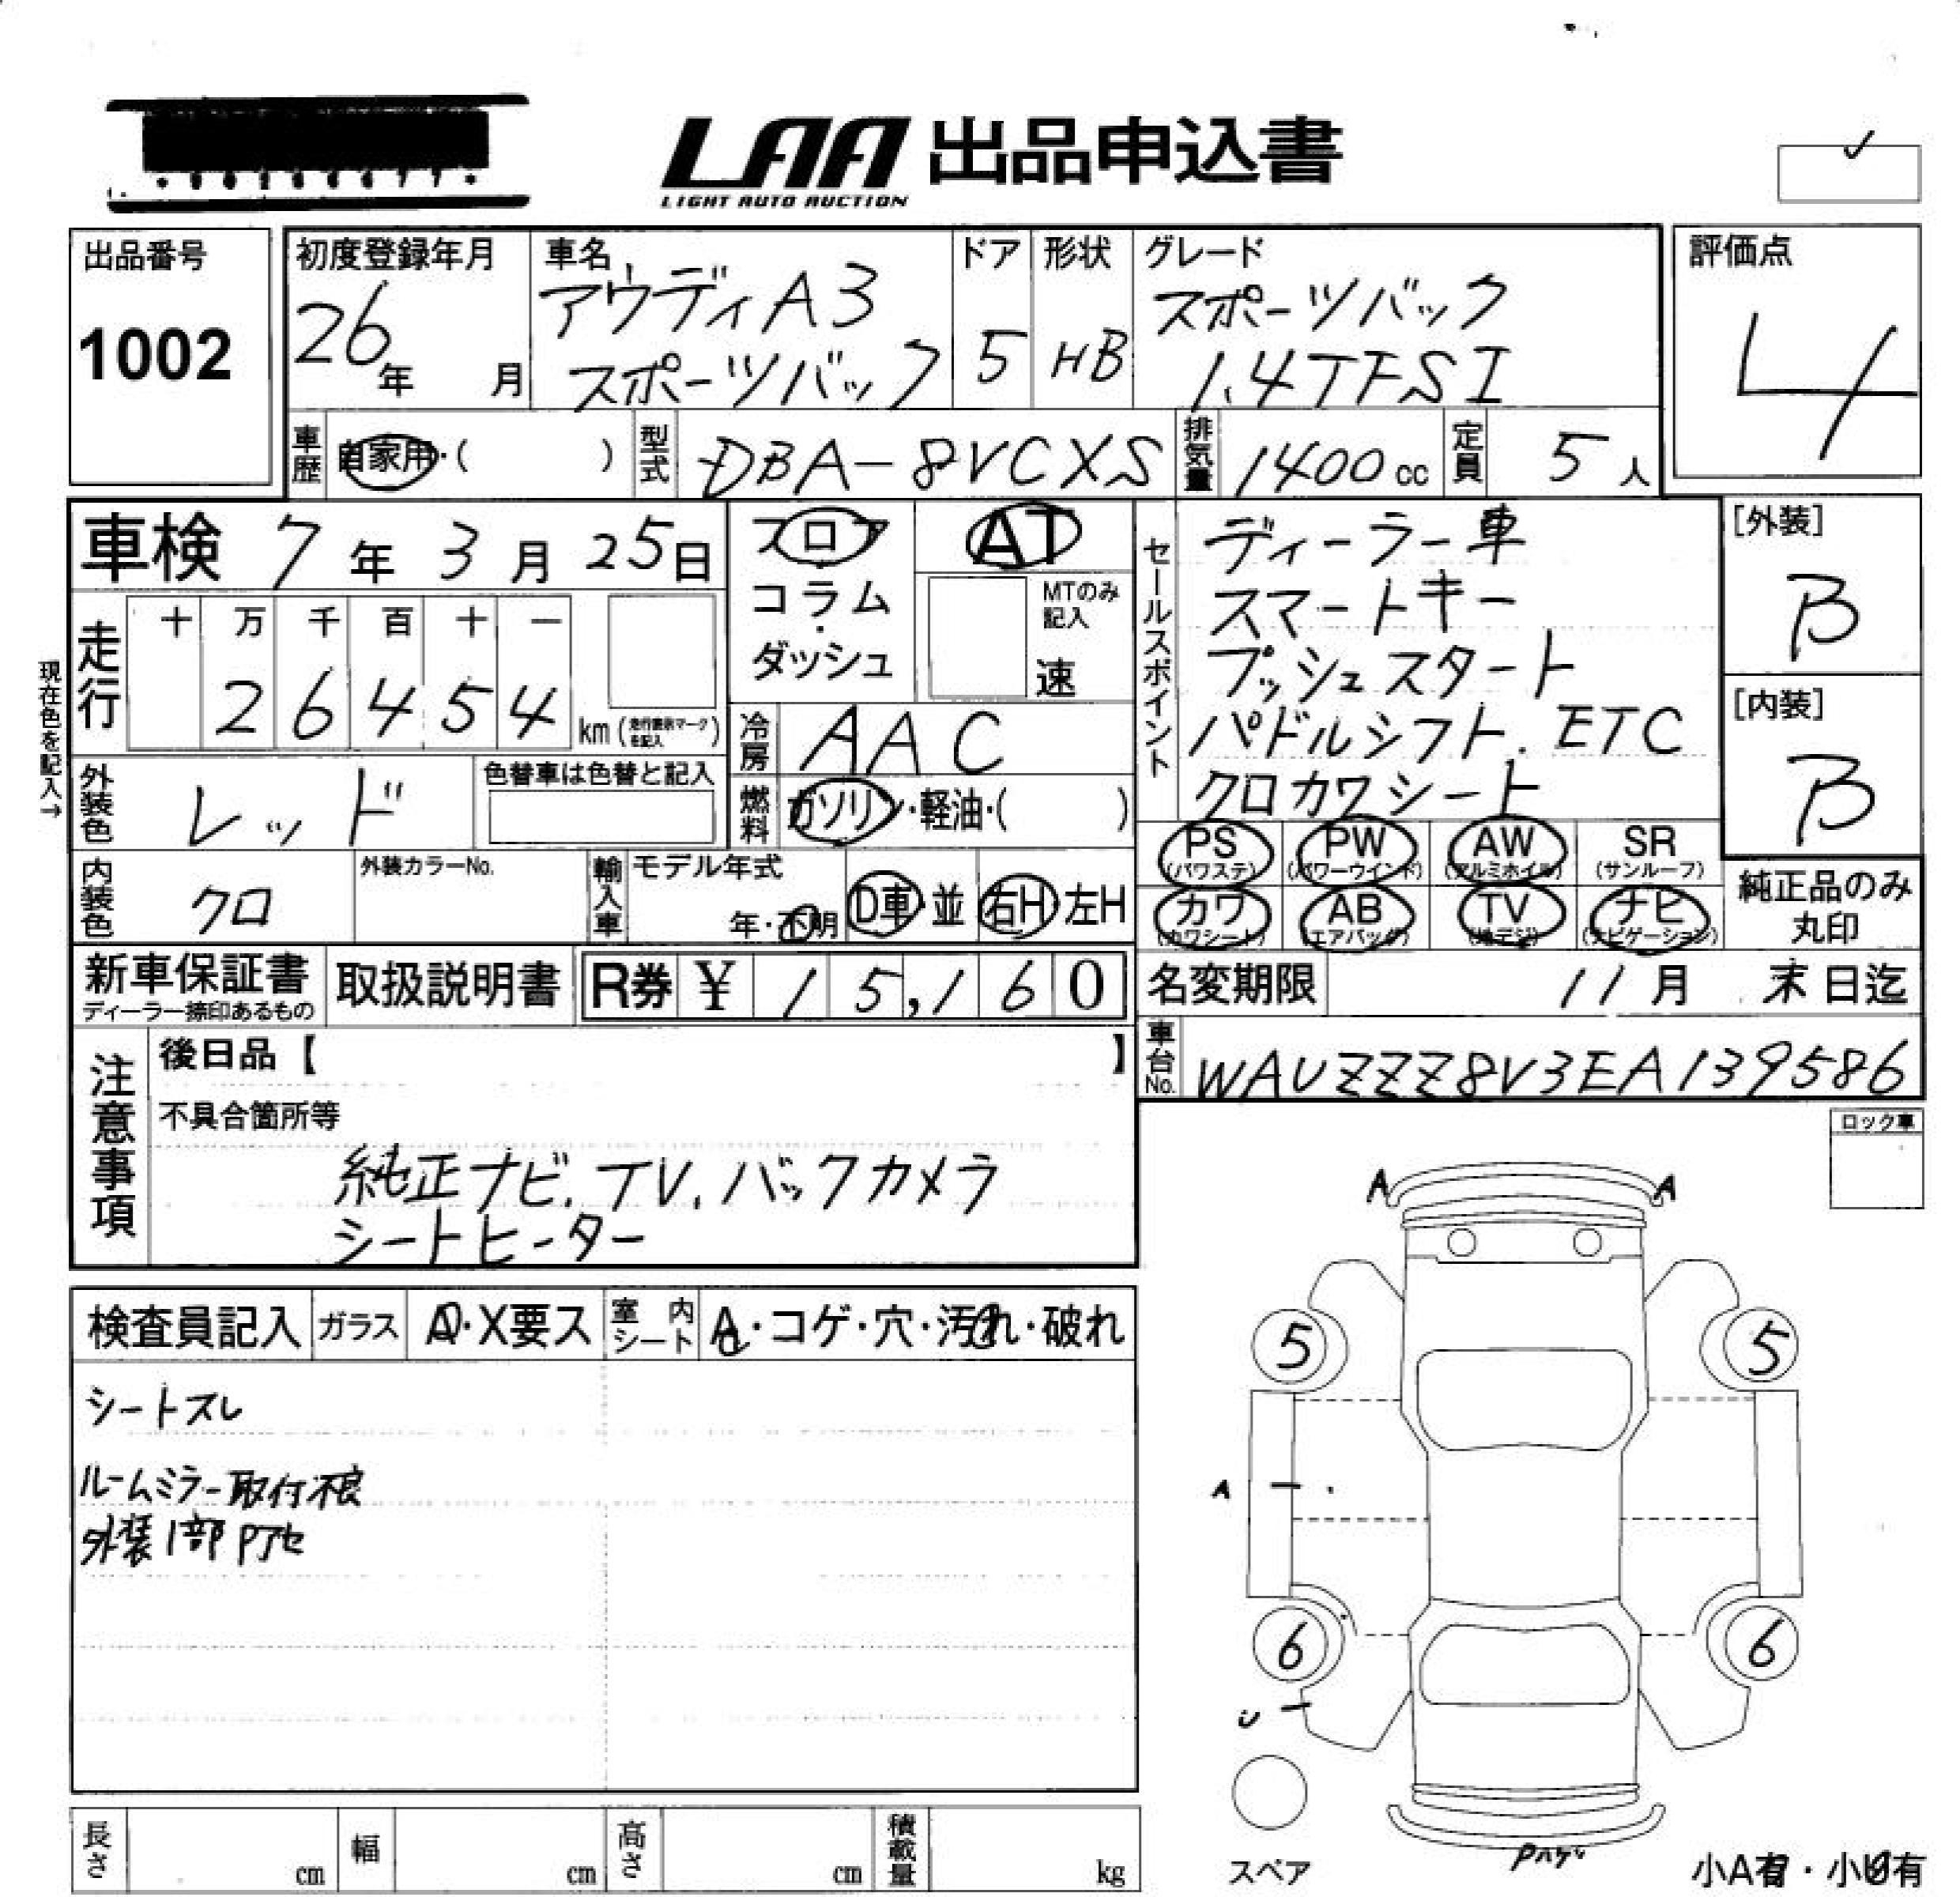 LAA 出品申込書
LIGHT AUTO AUCTION
出品番号
1002
初度登録年月
26年 月
車名
アウディA3
スポーツバック
ドア
5
形状
HB
グレード
スポーツバック
1.4TFSI
評価点
4
車歴 自家用・( )
型式 DBA-8VCXS
排気量 1400cc
定員 5人
車検 7年3月25日
フロア
コラム
・
ダッシュ
AT
MTのみ
記入
速
セールスポイント
ディーラー車
スマートキー
プッシュスタート
パドルシフト.ETC
クロカワシート
[外装]
B
[内装]
B
現在色を記入→
走行
十 万 千 百 十 一
2 6 4 5 4 km(走行表示マークを記入)
冷房 AAC
外装色 レッド
色替車は色替と記入
燃料 ガソリン・軽油・( )
内装色 クロ
外装カラーNo.
輸入車
モデル年式
年・不明
D車・並
右H・左H
PS (パワステ)
PW (パワーウインド)
AW (アルミホイル)
SR (サンルーフ)
カワ (カワシート)
AB (エアバッグ)
TV (地デジ)
ナビ (ナビゲーション)
純正品のみ
丸印
新車保証書
ディーラー捺印あるもの
取扱説明書
R券 ¥ 15,160
名変期限 11月 末日迄
注意事項
後日品【 】
不具合箇所等
純正ナビ.TV.バックカメラ
シートヒーター
車台No. WAUZZZ8V3EA139586
ロック車
検査員記入
ガラス A・X要ス
室内シート A・コゲ・穴・汚れ・破れ
シートスレ
ルームミラー取付不良
外装1部Pアセ
A A
5 5
A
6 6
U
スペア
Pハゲ
小A有・小U有
長さ cm
幅 cm
高さ cm
積載量 kg